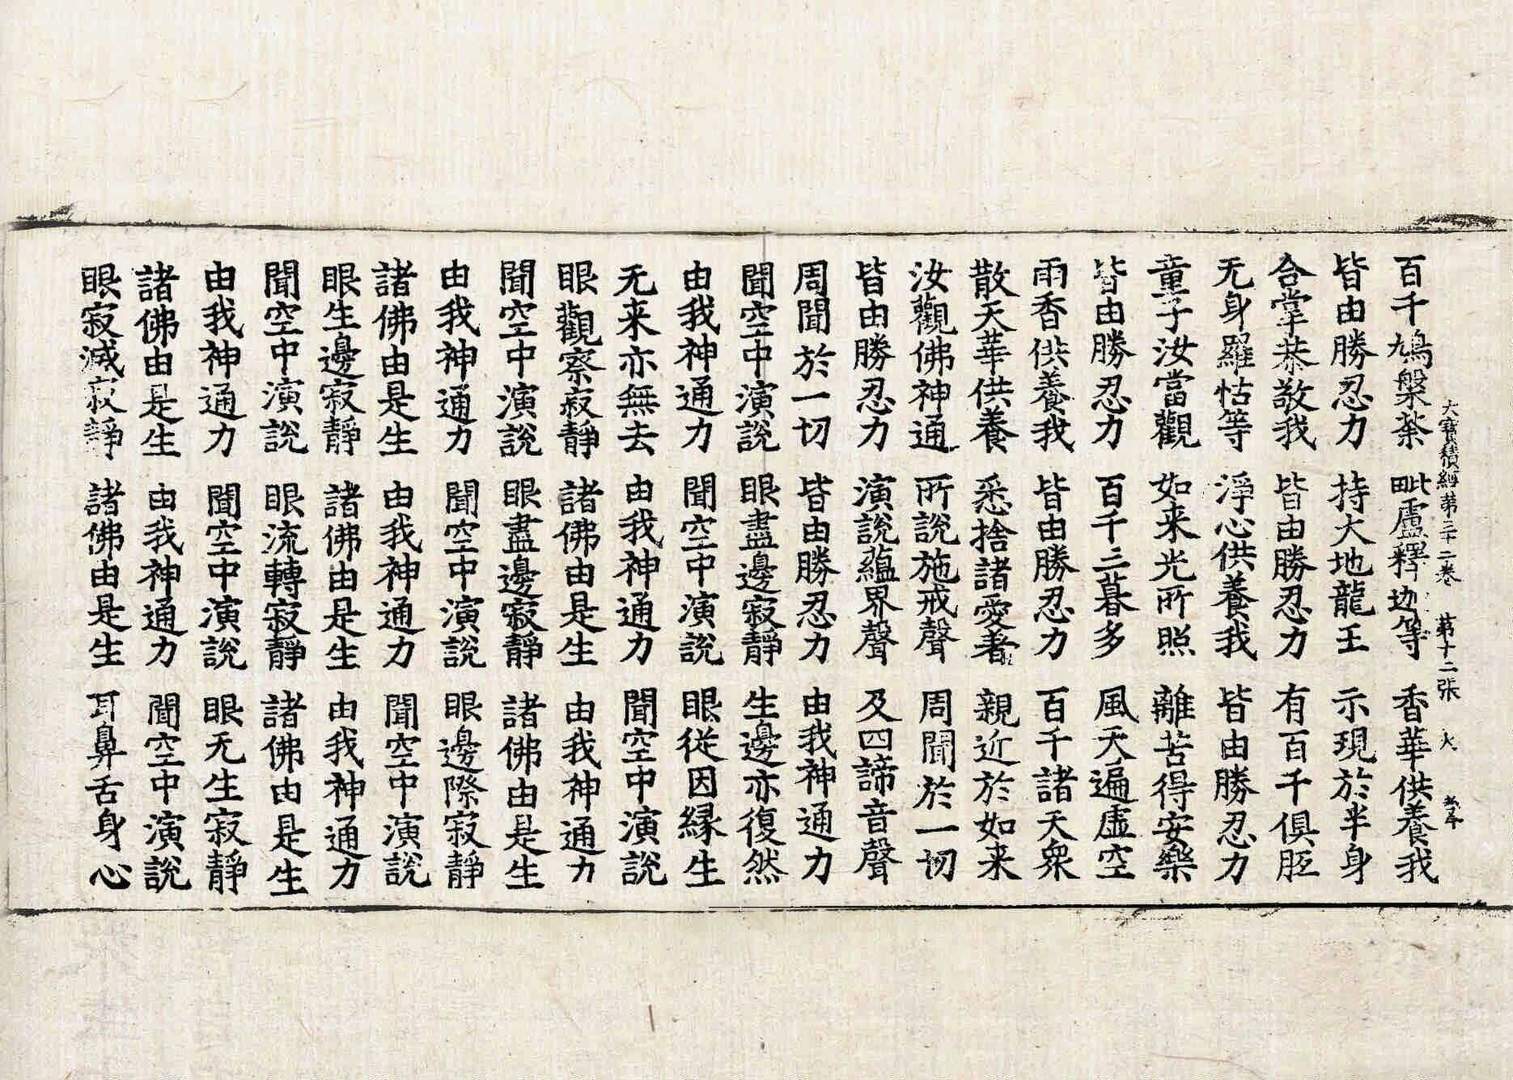 大寶積經第三十二卷　第十二張　火
百千鳩槃荼　毗盧釋迦等　香華供養我
皆由勝忍力　持大地龍王　示現於半身
合掌恭敬我　皆由勝忍力　有百千俱胝
无身羅怙等　淨心供養我　皆由勝忍力
童子汝當觀　如来光所照　離苦得安樂
皆由勝忍力　百千三暮多　風天遍虛空
雨香供養我　皆由勝忍力　百千諸天衆
散天華供養　悉捨諸愛著　親近於如来
汝觀佛神通　所說施戒聲　周聞於一切
皆由勝忍力　演說蘊界聲　及四諦音聲
周聞於一切　皆由勝忍力　由我神通力
聞空中演說　眼盡邊寂靜　生邊亦復然
由我神通力　聞空中演說　眼從因緣生
无来亦無去　由我神通力　聞空中演說
眼觀察寂靜　諸佛由是生　由我神通力
聞空中演說　眼盡邊寂靜　諸佛由是生
由我神通力　聞空中演說　眼邊際寂靜
諸佛由是生　由我神通力　聞空中演說
眼生邊寂靜　諸佛由是生　由我神通力
聞空中演說　眼流轉寂靜　諸佛由是生
由我神通力　聞空中演說　眼无生寂靜
諸佛由是生　由我神通力　聞空中演說
眼寂滅寂靜　諸佛由是生　耳鼻舌身心